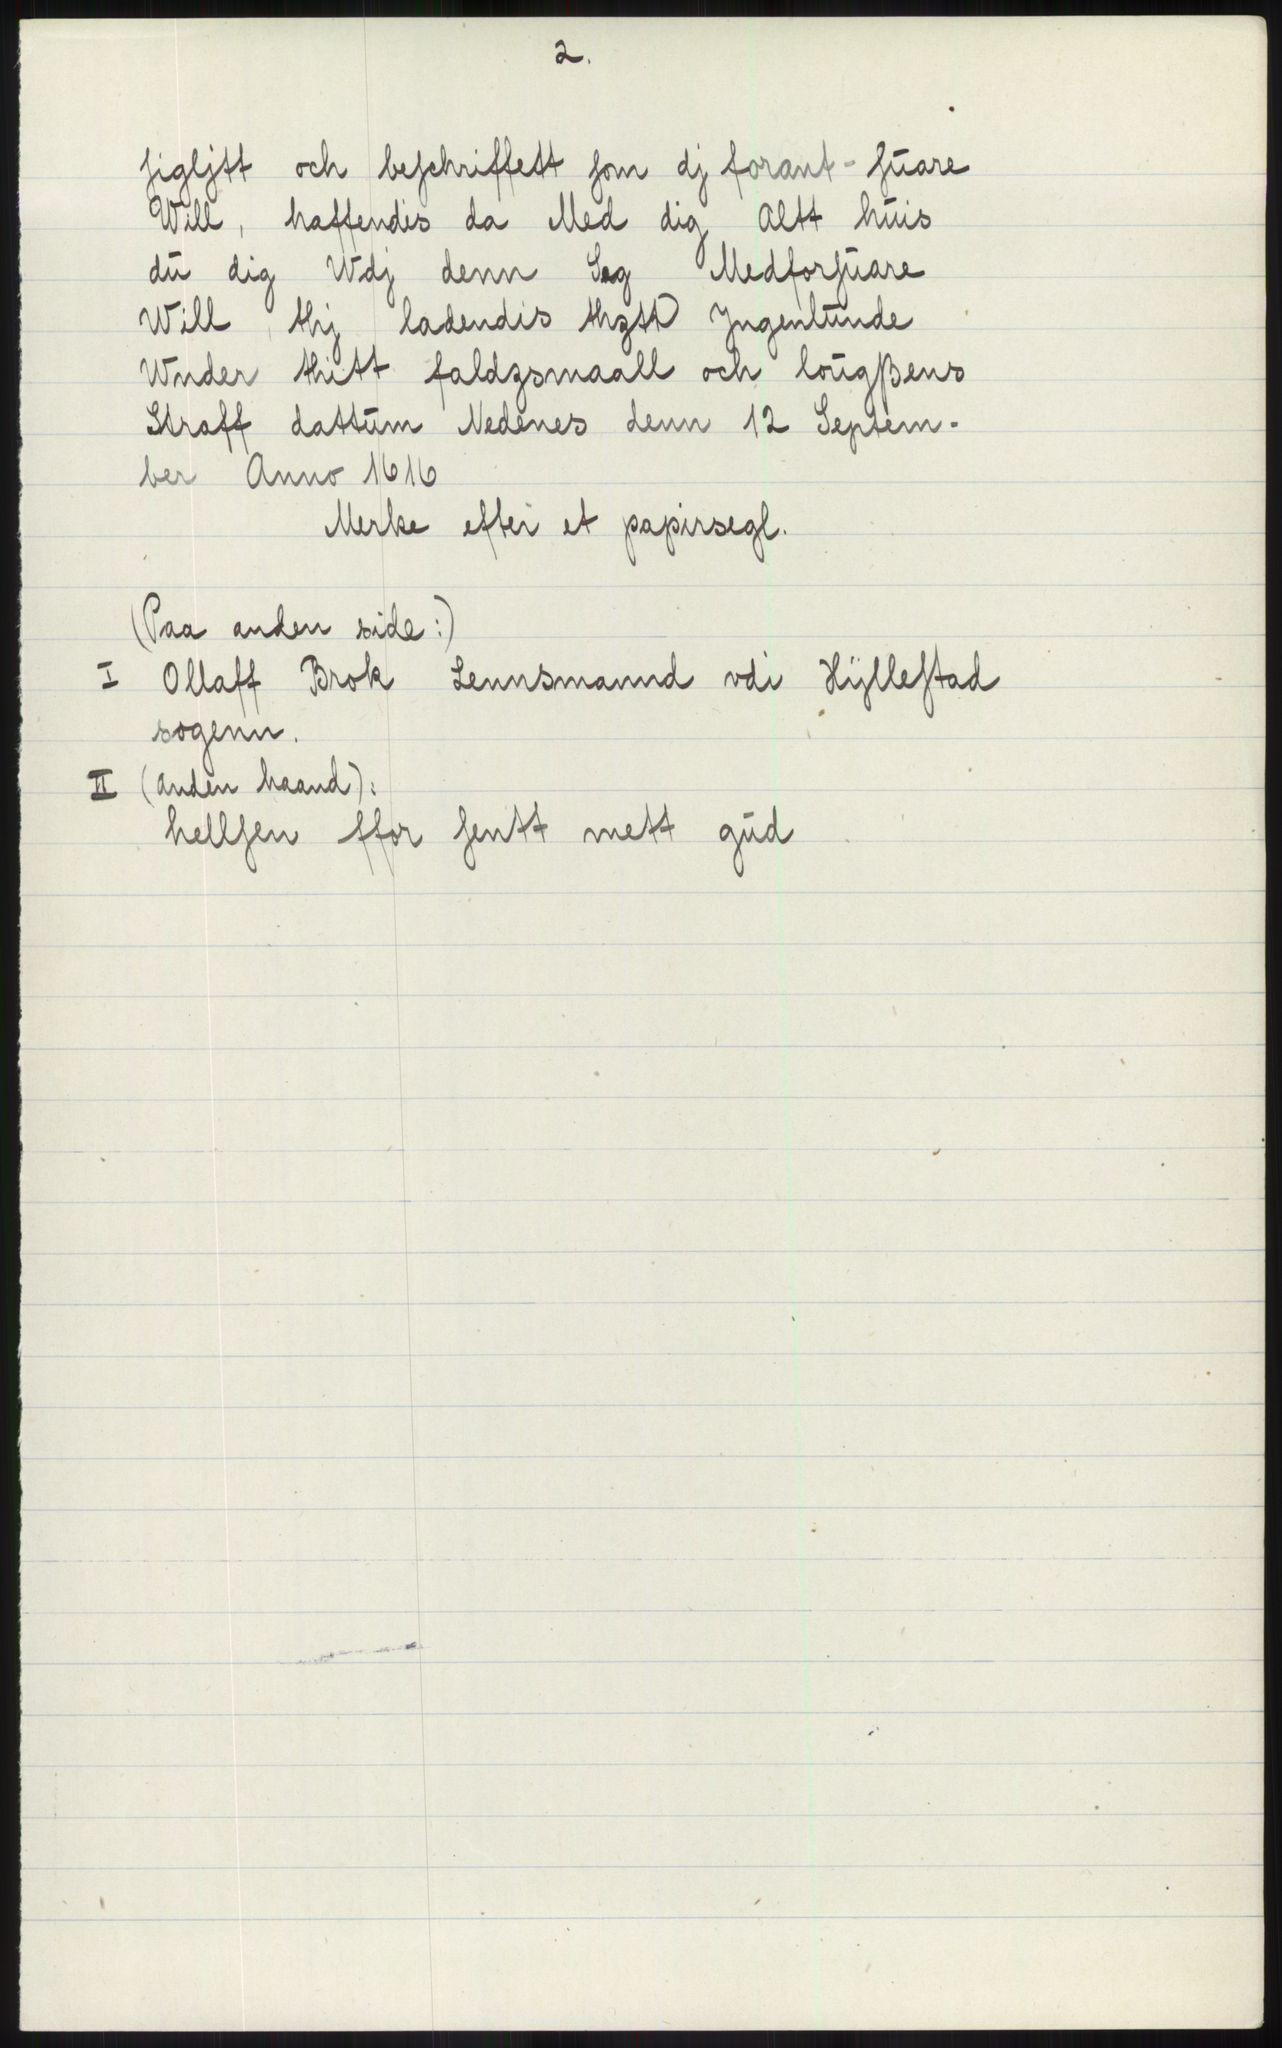 2.
ſigljtt och beſchriffett ſom dj forant-ſŭare
Will, haffendis da Med dig Altt hŭis
dŭ dig Wdj denn Sag Medforſŭare
Will thj ladendis thztt Jngenlŭnde
Wnder thitt faldzsmaall och loŭgßens
Straff dattŭm Nedenes denn 12 Septem-
ber Anno 1616
Merke efter et papirsegl.
(Paa anden side:)
I Ollaff Brok Lennsmannd vdi Hÿlleſtad
sogenn.
II (anden haand):
hellſen ffor ſentt mett gŭd